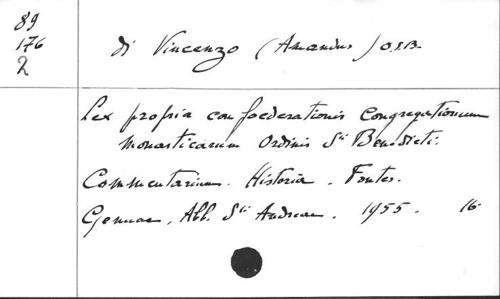 89
176
2
di Vincenzo (Amandus) O.S.B.
Lex propria confoederationis Congregationum
Monasticarum Ordinis Sti Benedicti.
Commentarium. Historia. Fontes.
Genuae, Abb. Sti Andreae. 1955. 16